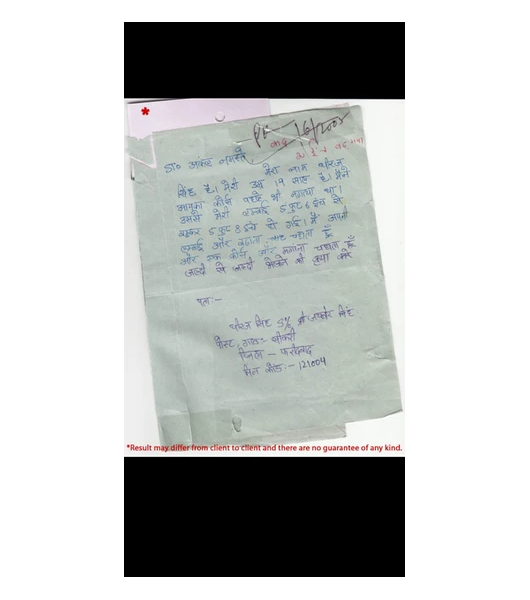 *
16/2005
डा०
मेरा नाम धीरज
सिंह है। मेरी उम्र 19 साल है। मैंने
आपका कोर्स पहले भी मंगाया था।
उससे मेरी लम्बाई 5 फुट 6 इंच से
बढ़कर 5 फुट 8 इंच हो गई। मैं अपनी
लम्बाई और बढ़ाना चाहता हूँ
और एक कोर्स और मंगाना चाहता हूँ
जल्दी से जल्दी भेजने की कृपा करें
पता:-
धीरज सिंह S/o श्री सिंह
पोस्ट, गांव:- सीकरी
जिला - फरीदाबाद
पिन कोड:- 121004
*Result may differ from client to client and there are no guarantee of any kind.